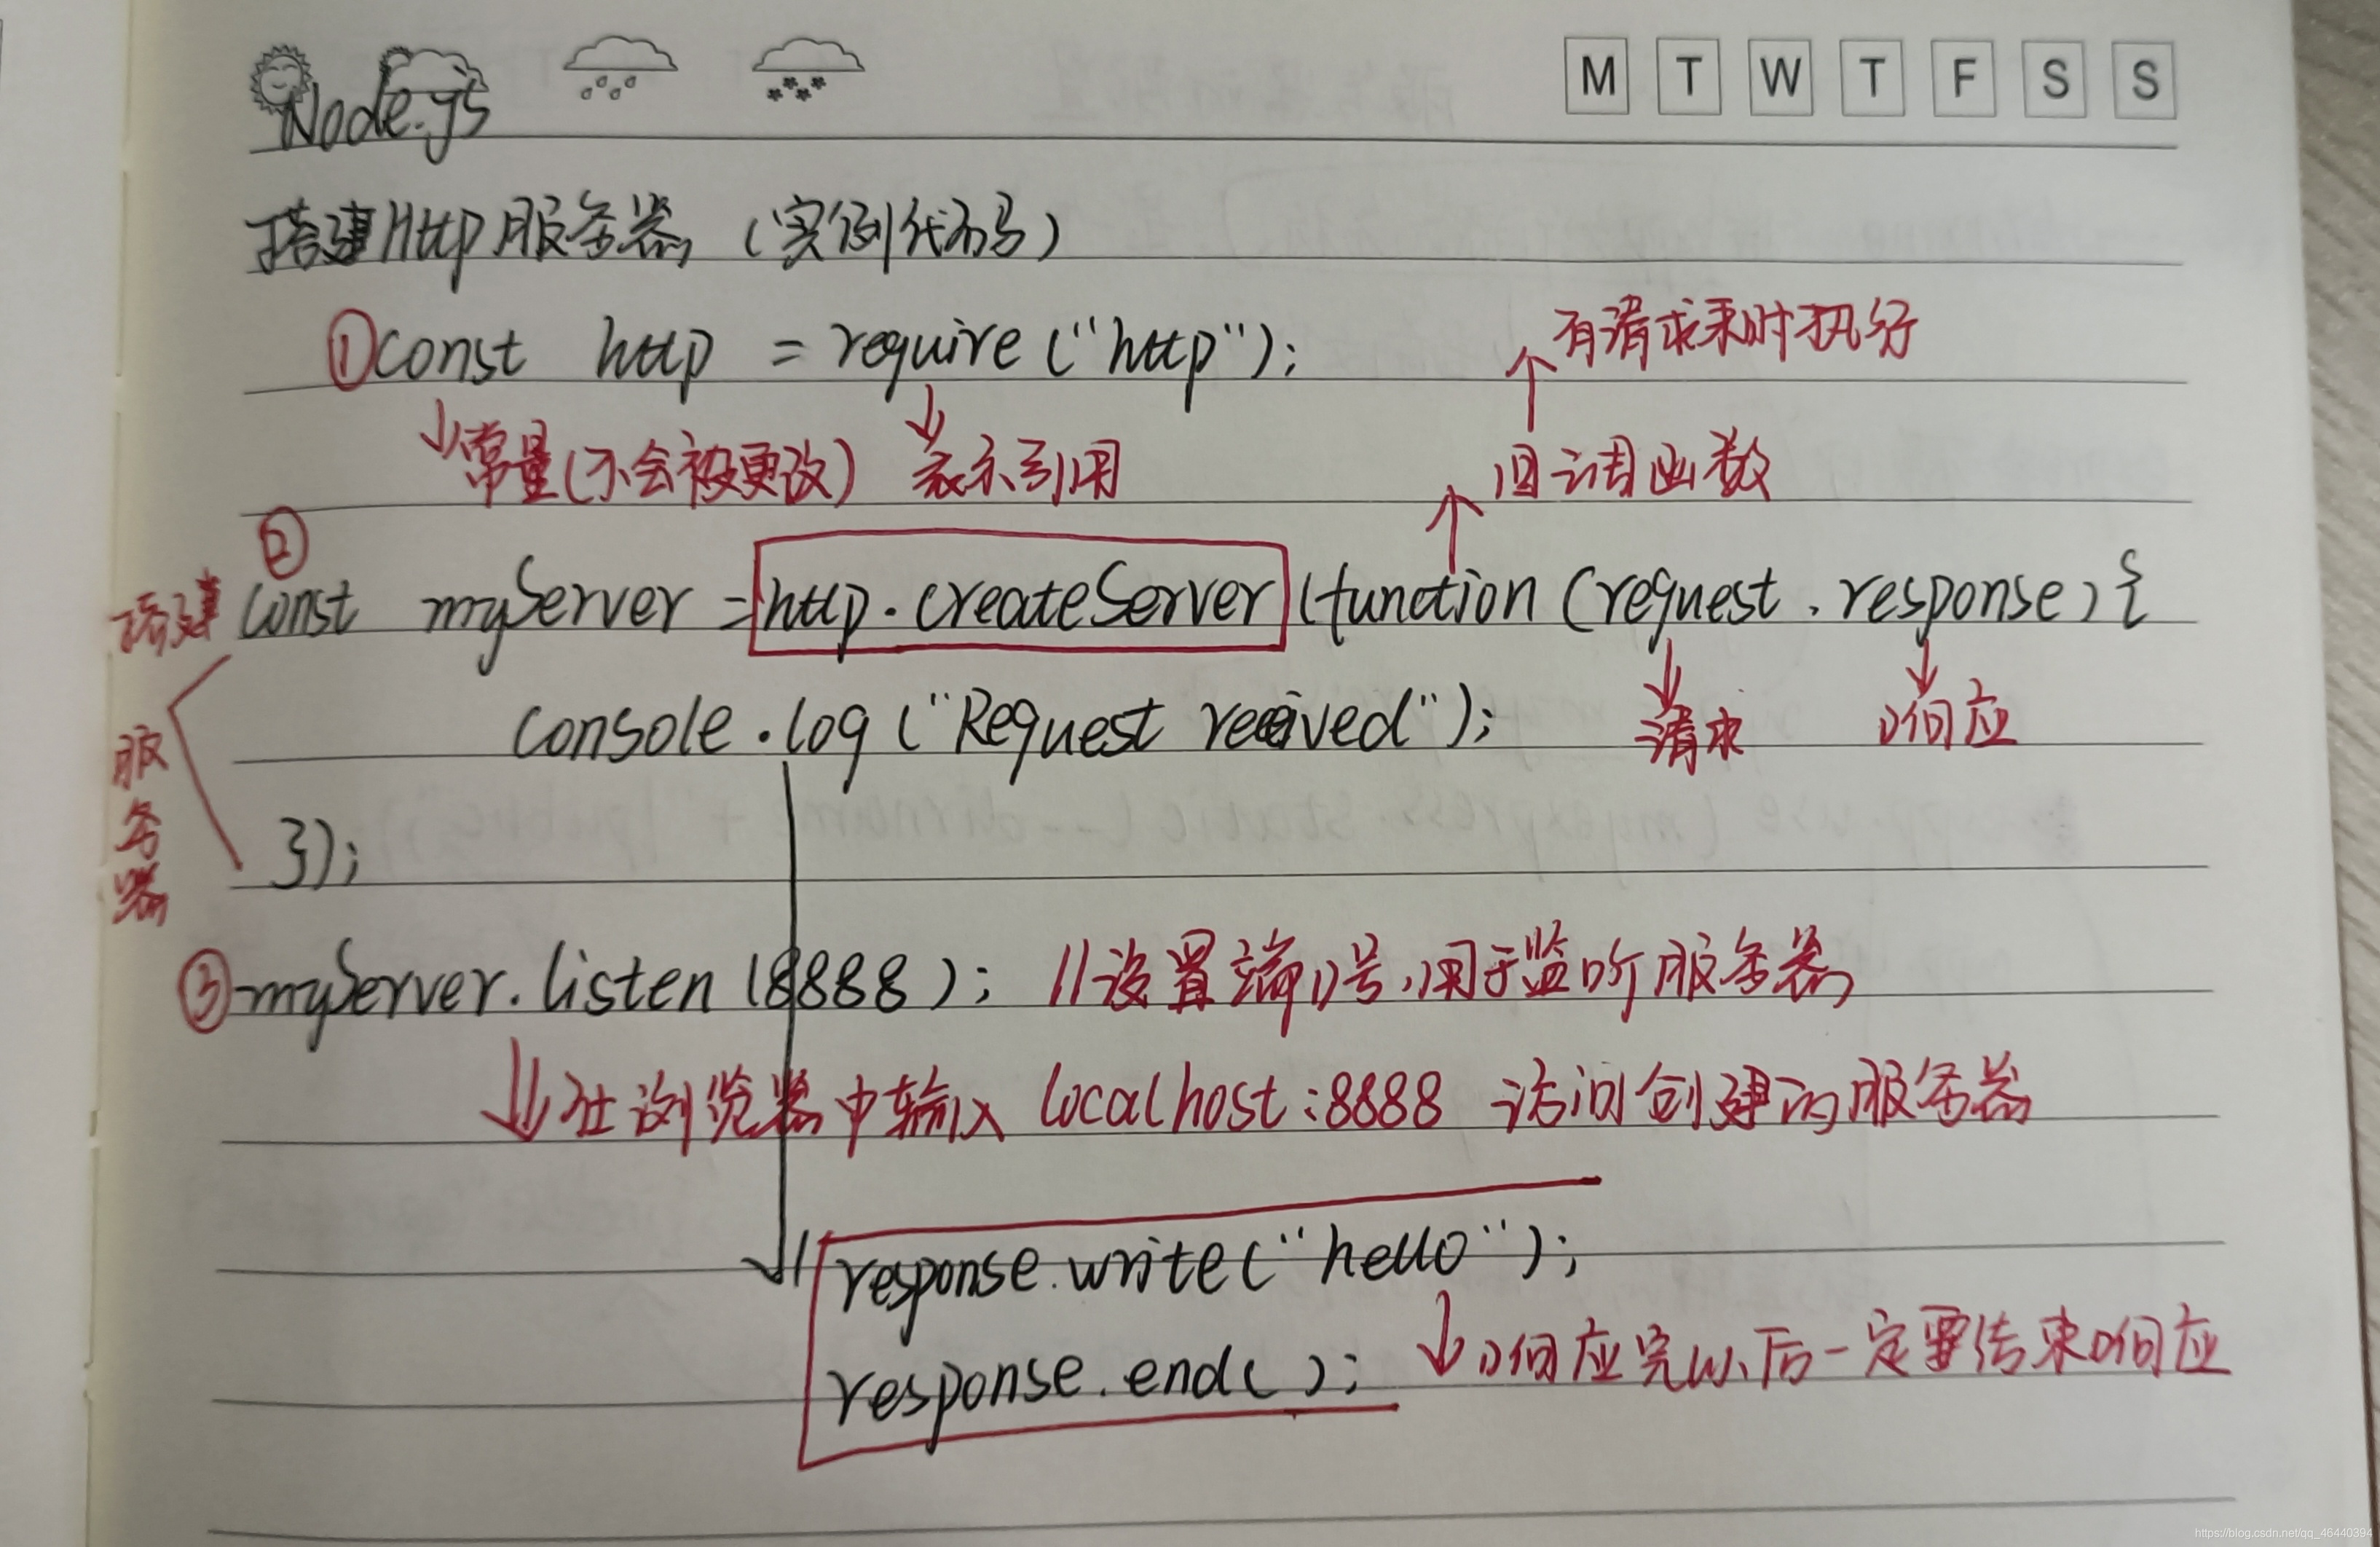 M T W T F S S
Node.js
搭建Http服务器（实例代码）
①const http = require ("http");
有请求来时执行
↓常量(不会被更改) ↓表示引用
回调函数
②
搭建 const myServer = http.createServer (function (request, response) {
console.log ("Request received");
请求 响应
服务器
});
③myServer.listen (8888); //设置端口号,用于监听服务器
在浏览器中输入 localhost:8888 访问创建的服务器
response.write("hello");
response.end( ); 响应完以后一定要结束响应
https://blog.csdn.net/qq_46440394